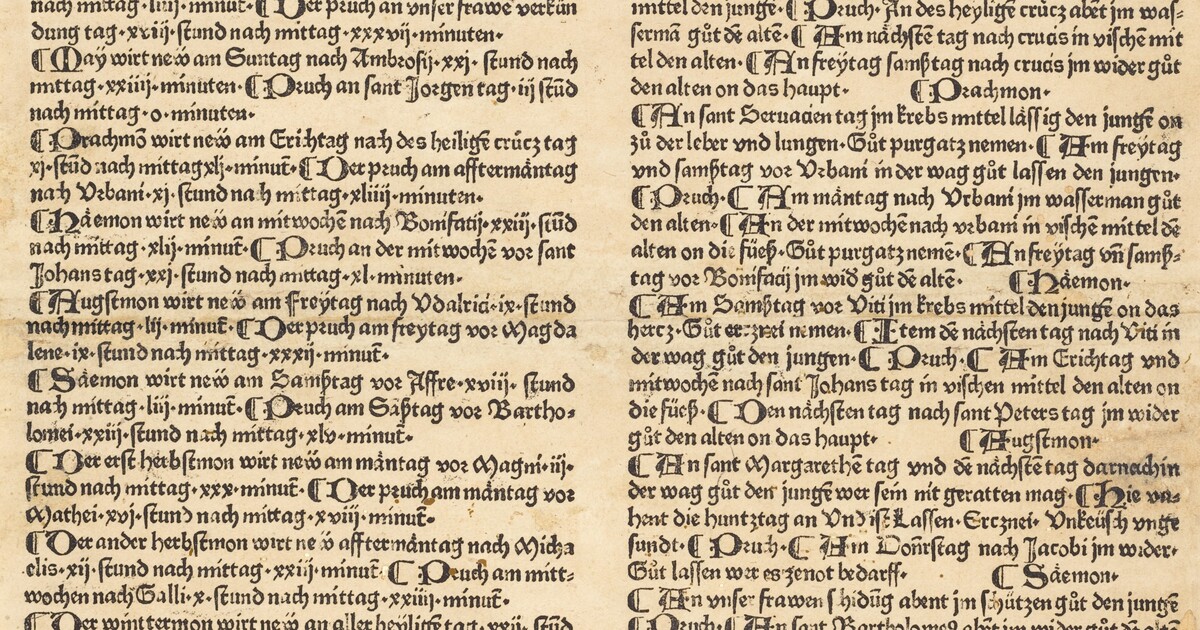 nach mittag·liiij·minut̄·⸿Der pruch an vnser frawē verkün
dung tag·xviij·stund nach mittag·xxxvij·minuten·
⸿May wirt neẅ am Suntag nach Ambrosij·xxj·stund nach
mittag·xxiiij·minuten·⸿Pruch an sant Jorgen tag·iij stūd
nach mittag·o·minuten·
⸿Prachmō wirt neẅ am Erichtag nach des heiligē crücz tag
xj·stūd nach mittag xlj·minut̄·⸿Der pruch am afftermāntag
nach Vrbani·xj·stund nach mittag·xliiij·minuten·
⸿Häemon wirt neẅ an mitwochē nach Bonifatij·xxiij·stūd
nach mittag·xlij·minut̄·⸿Pruch an der mitwochē vor sant
Johans tag·xxj·stund nach mittag·xl·minuten·
⸿Augstmon wirt neẅ am Freytag nach Vdalrici·ix·stund
nach mittag·lij·minut̄·⸿Der pruch am freytag vor Magda
lene·ix·stund nach mittag·xxxij·minut̄·
⸿Säemon wirt neẅ am Samßtag vor Affre·xviij·stund
nach mittag·liij·minut̄·⸿Pruch am Sāßtag vor Bartho⸗
lomei·xxiij·stund nach mittag·xlv·minut̄·
⸿Der erst herbstmon wirt neẅ am māntag vor Magni·iij·
stund nach mittag·xxx·minut̄·⸿Der pruch am mäntag vor
Mathei·xvj·stund nach mittag·xviij·minut̄·
⸿Der ander herbstmon wirt neẅ afftermāntag nach Micha
elis·xij·stund nach mittag·xxiij·minut̄ ⸿Pruch am mitt⸗
wochen nach Galli·x·stund nach mittag·xxiij·minut̄·
⸿Der wintermon wirt neẅ an aller heyligē tag·xxij·stūd
mittel den jungē·⸿Pruch·An des heyligē crücz abēt jm was⸗
sermā gůt dē altē·⸿Am nächstē tag nach crucis in vischē mit
tel den alten·⸿An freytag samßtag nach crucis jm wider gůt
den alten on das haupt· ⸿Prachmon·
⸿An sant Seruacien tag jm krebs mittel lässig den jungē on
zů der leber vnd lungen·Gůt purgatz nemen·⸿Am freytag
vnd samßtag vor Vrbani in der wag gůt lassen den jungen·
⸿Pruch·⸿Am mäntag nach Vrbani jm wasserman gůt
den alten·⸿An der mitwochē nach vrbani in vischē mittel dē
alten on die füeß·Gůt purgatz nemē·⸿An freytag vn̄ samß⸗
tag vor Bonifacij jm wid gůt dē altē· ⸿Häemon·
⸿Am Samßtag vor Viti jm krebs mittel den jungē on das
hercz·Gůt ercznei nemen·⸿Item dē nächsten tag nach Viti in
der wag gůt den jungen·⸿Pruch·⸿Am Erichtag vnd
mitwochē nach sant Johans tag in vischen mittel den alten on
die füeß·⸿Den nächsten tag nach sant Peters tag jm wider
gůt den alten on das haupt· ⸿Augstmon·
⸿An sant Margarethē tag vnd dē nächstē tag darnach in
der wag gůt den jungē wer sein nit geratten mag·⸿Hie va⸗
hent die huntztag an Vnd ist Lassen·Ercznei·Vnkeüsch vnge
sundt·⸿Pruch·⸿Am Don̄rstag nach Jacobi jm wider·
Gůt lassen wer es ze not bedarff· ⸿Säemon·
⸿An vnser frawen schidūg abent jm schützen gůt den jungē
⸿Pruch·⸿An sant Bartholomeꝰ abēt jm wider gůt dē altē